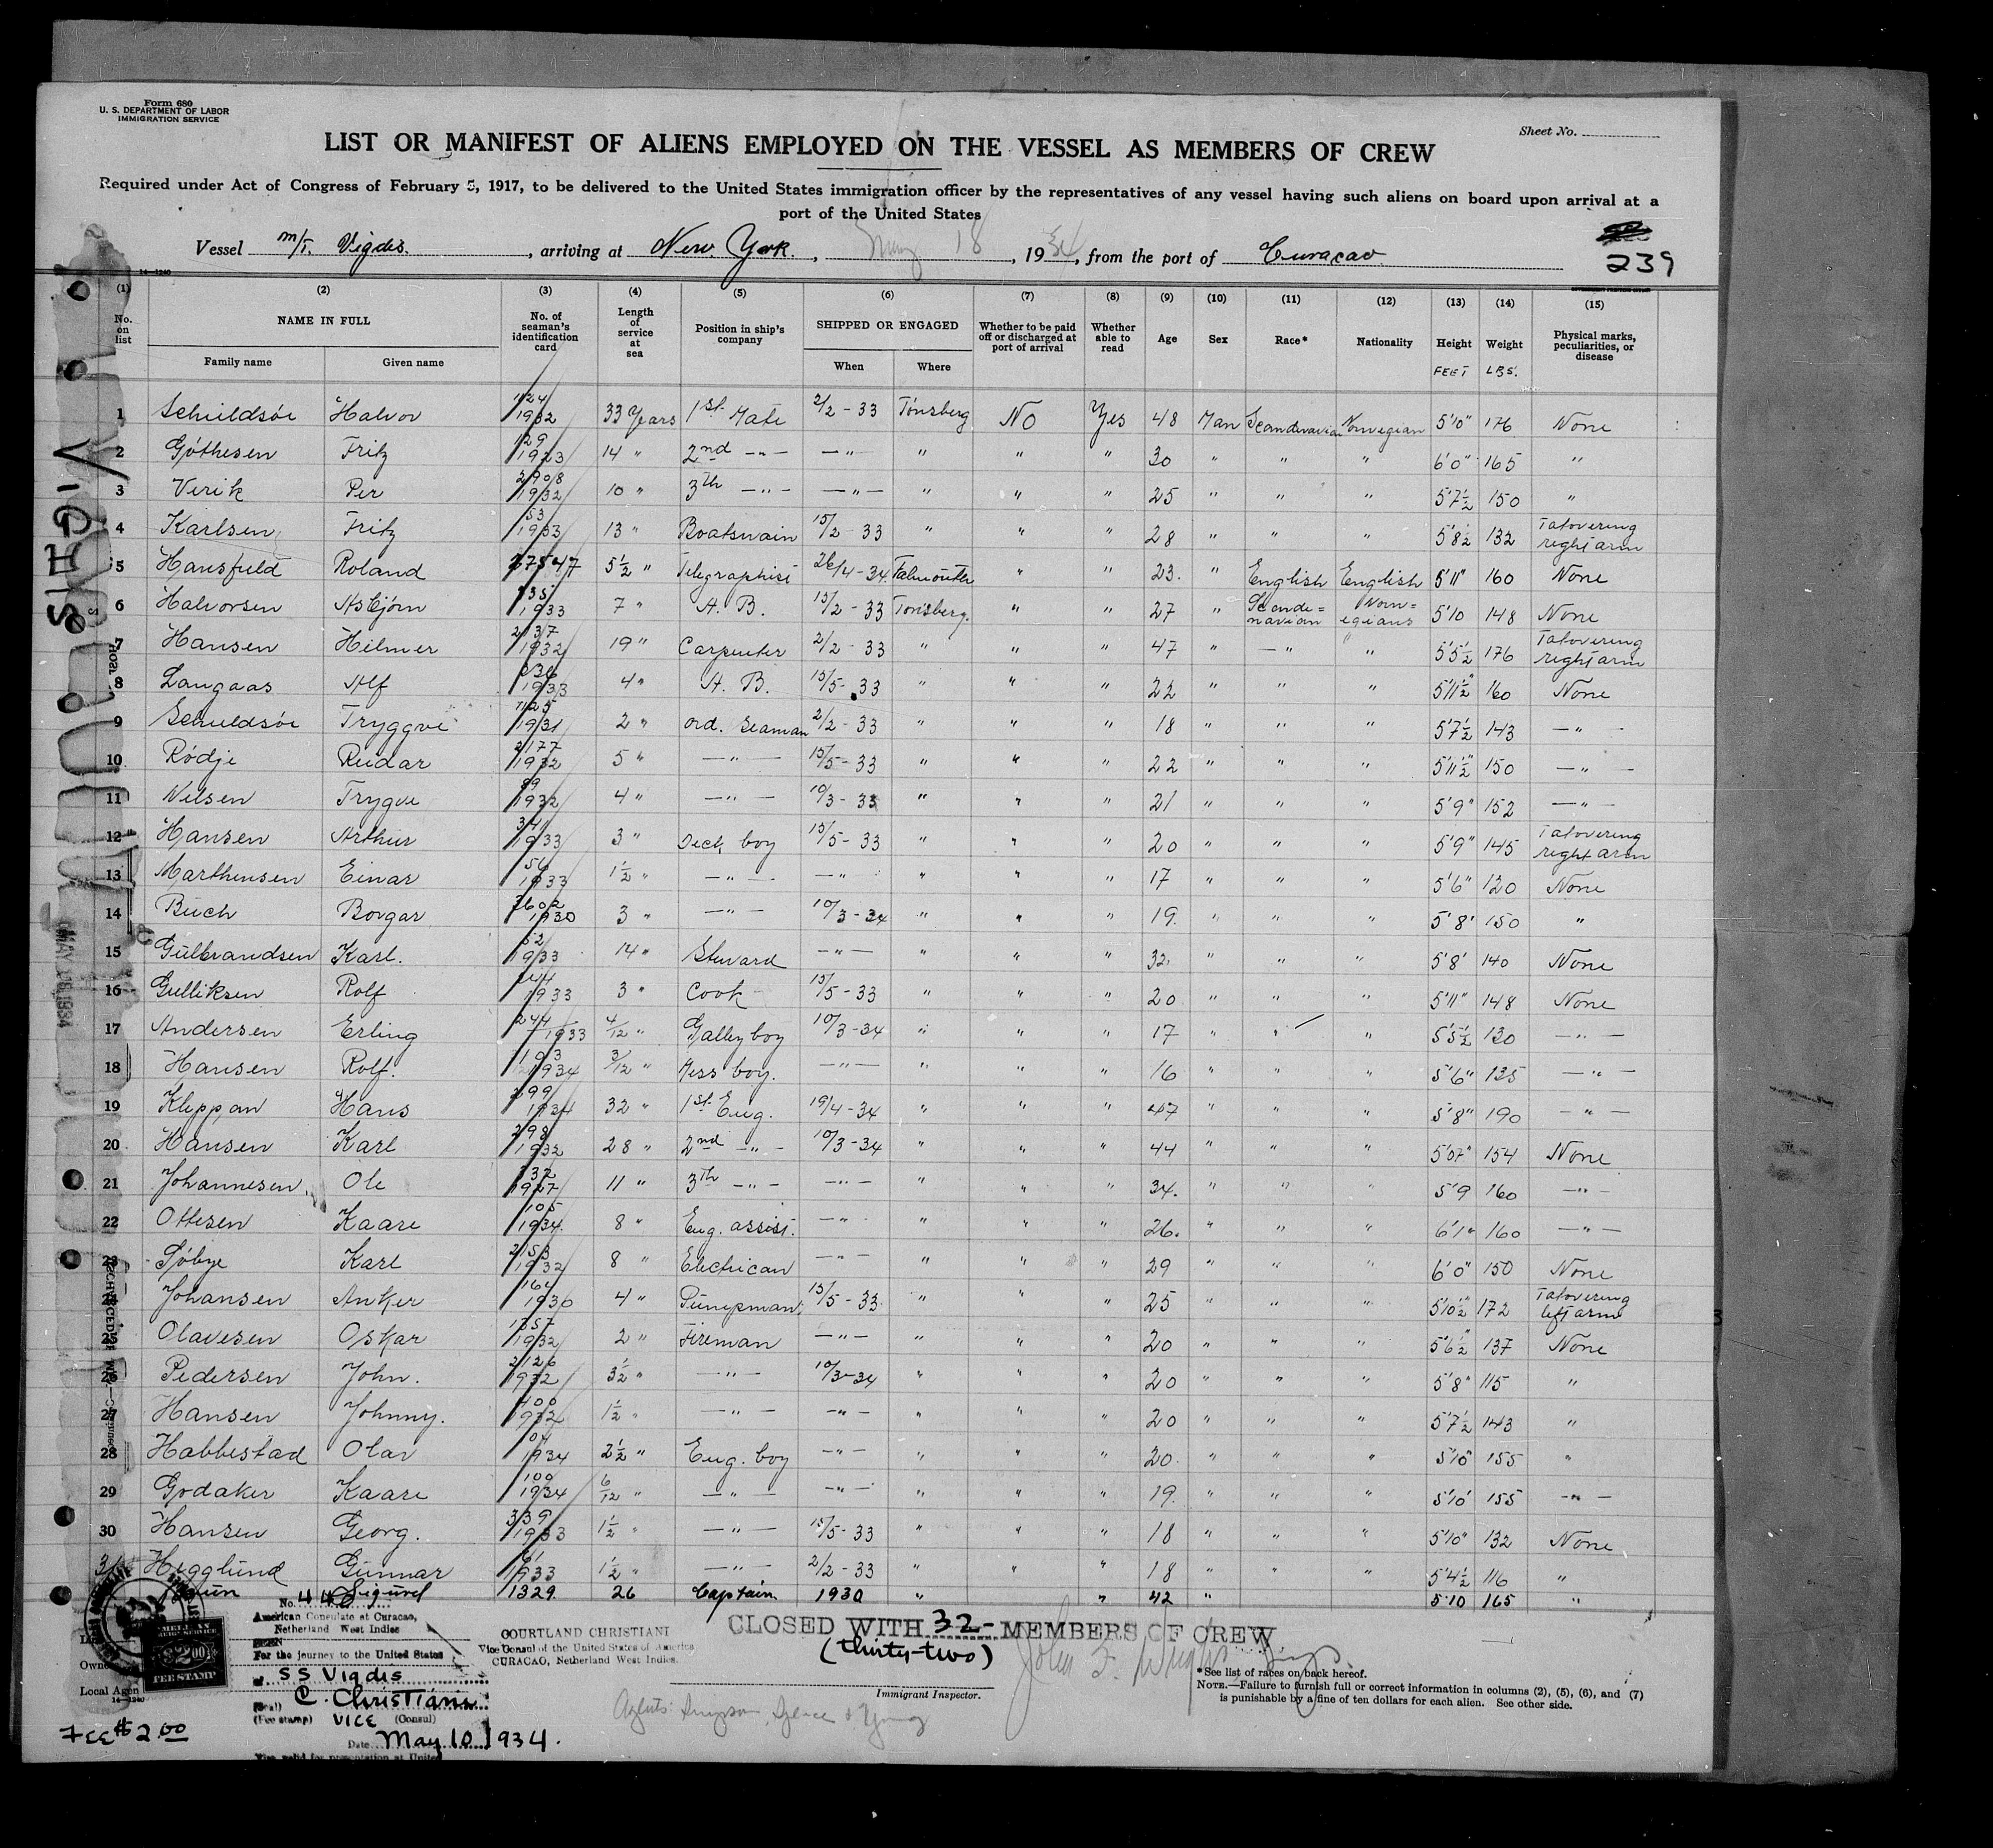 Form 680
U. S. DEPARTMENT OF LABOR
IMMIGRATION SERVICE
Sheet No.
LIST OR MANIFEST OF ALIENS EMPLOYED ON THE VESSEL AS MEMBERS OF CREW
Required under Act of Congress of February 5, 1917, to be delivered to the United States immigration officer by the representatives of any vessel having such aliens on board upon arrival at a
port of the United States
Vessel M/T. Vigdis., arriving at New York., May 18, 1934, from the port of Curacao
239
14-1240
(1) (2) (3) (4) (5) (6) (7) (8) (9) (10) (11) (12) (13) (14) (15)
No. on list NAME IN FULL No. of seaman's identification card Length of service at sea Position in ship's company SHIPPED OR ENGAGED Whether to be paid off or discharged at port of arrival Whether able to read Age Sex Race* Nationality Height Weight Physical marks, peculiarities, or disease
Family name Given name When Where FEET LBS.
1 Schieldsöe Halvor 1932 33 Years 1st Mate 2/2-33 Tönsberg No Yes 48 Man Scandinavian Norwegian 5'10" 176 None
2 Göthesen Fritz 129/1923 14 " 2nd -"- -"- " " " 30 " " " 6'0" 165 "
3 Verik Per 2908/1932 10 " 3th -"- -"- " " " 25 " " " 5'7½ 150 "
4 Karlsen Fritz 53/1933 13 " Boatswain 15/2-33 " " " 28 " " " 5'8½ 132 Tatovering right arm
5 Hansfield Roland 5½ " Telegraphist 26/4-34 Falmouth " " 23. " English English 5'11" 160 None
6 Halvorsen Asbjörn 1933 7 " A. B. 15/2-33 Tönsberg. " " 27 " Scandi=navian Norw=egians 5'10 148 None
7 Hansen Hilmer 2137/1932 19 " Carpenter 2/2-33 " " " 47 " -" " 5'5½ 176 Tatovering right arm
8 Langaas Alf 1933 4 " A. B. 15/5-33 " " " 22 " " " 5'11½" 160 None
9 Schieldsöe Tryggve 1931 2 " ord. Seaman 2/2-33 " " " 18 " " " 5'7½ 143 -"-
10 Rödje Reidar 2177/1932 5 " -"- 15/5-33 " " " 22 " " " 5'11½" 150 -"-
11 Nilsen Trygve 89/1932 4 " -"- 10/3-33 " " " 21 " " " 5'9" 152 -"-
12 Hansen Arthur 341/1933 3 " Deck boy 15/5-33 " " " 20 " " " 5'9" 145 Tatovering right arm
13 Marthinsen Einar 56/1933 1½ " -"- -"- " " " 17 " " " 5'6" 120 None
14 Buch Borgar 2602/1930 3 " -"- 10/3-34 " " " 19. " " " 5'8' 150 "
15 Gulbrandsen Karl. 52/1933 14 " Steward -"- " " " 32. " " " 5'8' 140 None
16 Gulliksen Rolf 1933 3 " Cook 15/5-33 " " " 20 " " " 5'11" 148 None
17 Andersen Erling 244/1933 4/12 " Galley boy 10/3-34 " " " 17 " " " 5'5½ 130 -"-
18 Hansen Rolf. 103/1934 3/12 " Mess boy. -"- " " " 16 " " " 5'6" 135 -"-
19 Kleppan Hans 1934 32 " 1st Eng. 19/4-34 " " " 47 " " " 5'8" 190 -"-
20 Hansen Karl 298/1932 28 " 2nd -"- 10/3-34 " " " 44 " " " 5'07" 154 None
21 Johannesen Ole 1927 11 " 3th -"- -"- " " " 34. " " " 5'9 160 -"-
22 Ottesen Kaare 105/1934. 8 " Eng. assist. -"- " " " 26. " " " 6'1" 160 -"-
23 Söbye Karl 2153/1932 8 " Electrican -"- " " " 29 " " " 6'0" 150 None
24 Johansen Anker 1930 4 " Pumpman 15/5-33 " " " 25 " " " 5'10½" 172 Tatovering left arm
25 Olavesen Oskar 1357/1932 2 " Fireman -"- " " " 20 " " " 5'6½" 137 None
26 Pedersen John. 2126/1932 3½ " -"- 10/3-34 " " " 20 " " " 5'8" 115 "
27 Hansen Johnny. 400/1932 1½ " -"- -"- " " " 20 " " " 5'7½ 143 "
28 Habbestad Olav 1934 2½ " Eng. boy -"- " " " 20. " " " 5'10" 155 "
29 Godaker Kaare 100/1934 6/12 " -"- -"- " " " 19. " " " 5'10' 155 -"-
30 Hansen Georg. 339/1933 1½ " -"- 15/5-33 " " " 18 " " " 5'10" 132 None
31 Hegglund Gunnar 1933 1½ " -"- 2/2-33 " " " 18 " " " 5'4½ 116 "
Sigurd 1329. 26 Captain. 1930 " " 42 " 5'10 165 "
VIGDIS
MAY 18 1934
No. 448
American Consulate at Curaçao,
Netherland West Indies
SEEN
For the journey to the United States
of SS Vigdis
C. Christiani
(Seal)
(Fee stamp) VICE (Consul)
Date May 10 1934.
$2.00
FEE STAMP
Owner
Local Agen
14-1240
FEE $2.00
COURTLAND CHRISTIANI
Vice Consul of the United States of America
CURACAO, Netherland West Indies.
CLOSED WITH 32- MEMBERS OF CREW
(thirty-two)
John F. Wright
Immigrant Inspector.
Agents: Simpson, Spence & Young
*See list of races on back hereof.
NOTE.—Failure to furnish full or correct information in columns (2), (5), (6), and (7)
is punishable by a fine of ten dollars for each alien. See other side.